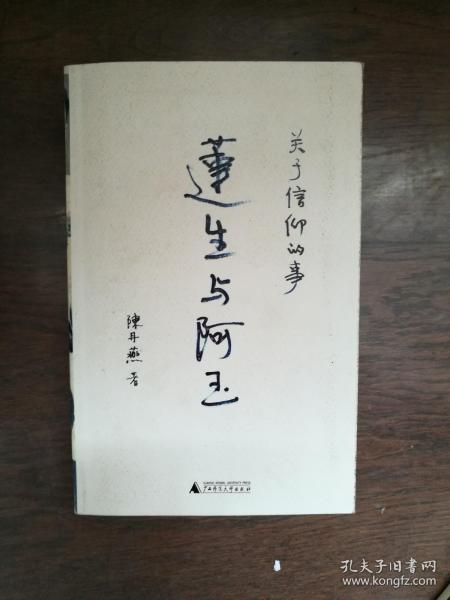 关于信仰的事
蓮生与阿玉
陳丹燕 著
GUANGXI NORMAL UNIVERSITY PRESS
广西师范大学出版社
孔夫子旧书网
www.kongfz.com